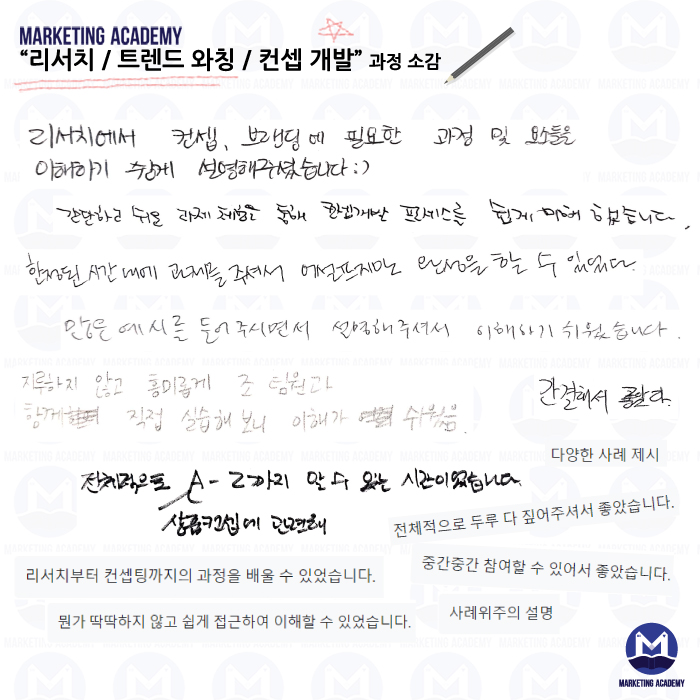 MARKETING ACADEMY
“리서치 / 트렌드 와칭 / 컨셉 개발” 과정 소감
리서치에서 컨셉, 브랜딩에 필요한 과정 및 요소들을
이해하기 쉽게 설명해주셨습니다:)
간단하고 쉬운 과제 체험은 통해 컨셉개발 프로세스를 쉽게 이해 했습니다.
한정된 시간 내에 과제를 주셔서 어설프지만 완성을 할 수 있었다.
많은 예시를 들어주시면서 설명해주셔서 이해하기 쉬웠습니다.
지루하지 않고 흥미롭게 조 팀원과
함께 직접 실습해 보니 이해가 쉬웠음.
간결해서 좋았다.
다양한 사례 제시
전체적으로 A-Z까지 알 수 있는 시간이었습니다.
상품컨셉에 관련해
전체적으로 두루 다 짚어주셔서 좋았습니다.
중간중간 참여할 수 있어서 좋았습니다.
리서치부터 컨셉팅까지의 과정을 배울 수 있었습니다.
사례위주의 설명
뭔가 딱딱하지 않고 쉽게 접근하여 이해할 수 있었습니다.
MARKETING ACADEMY